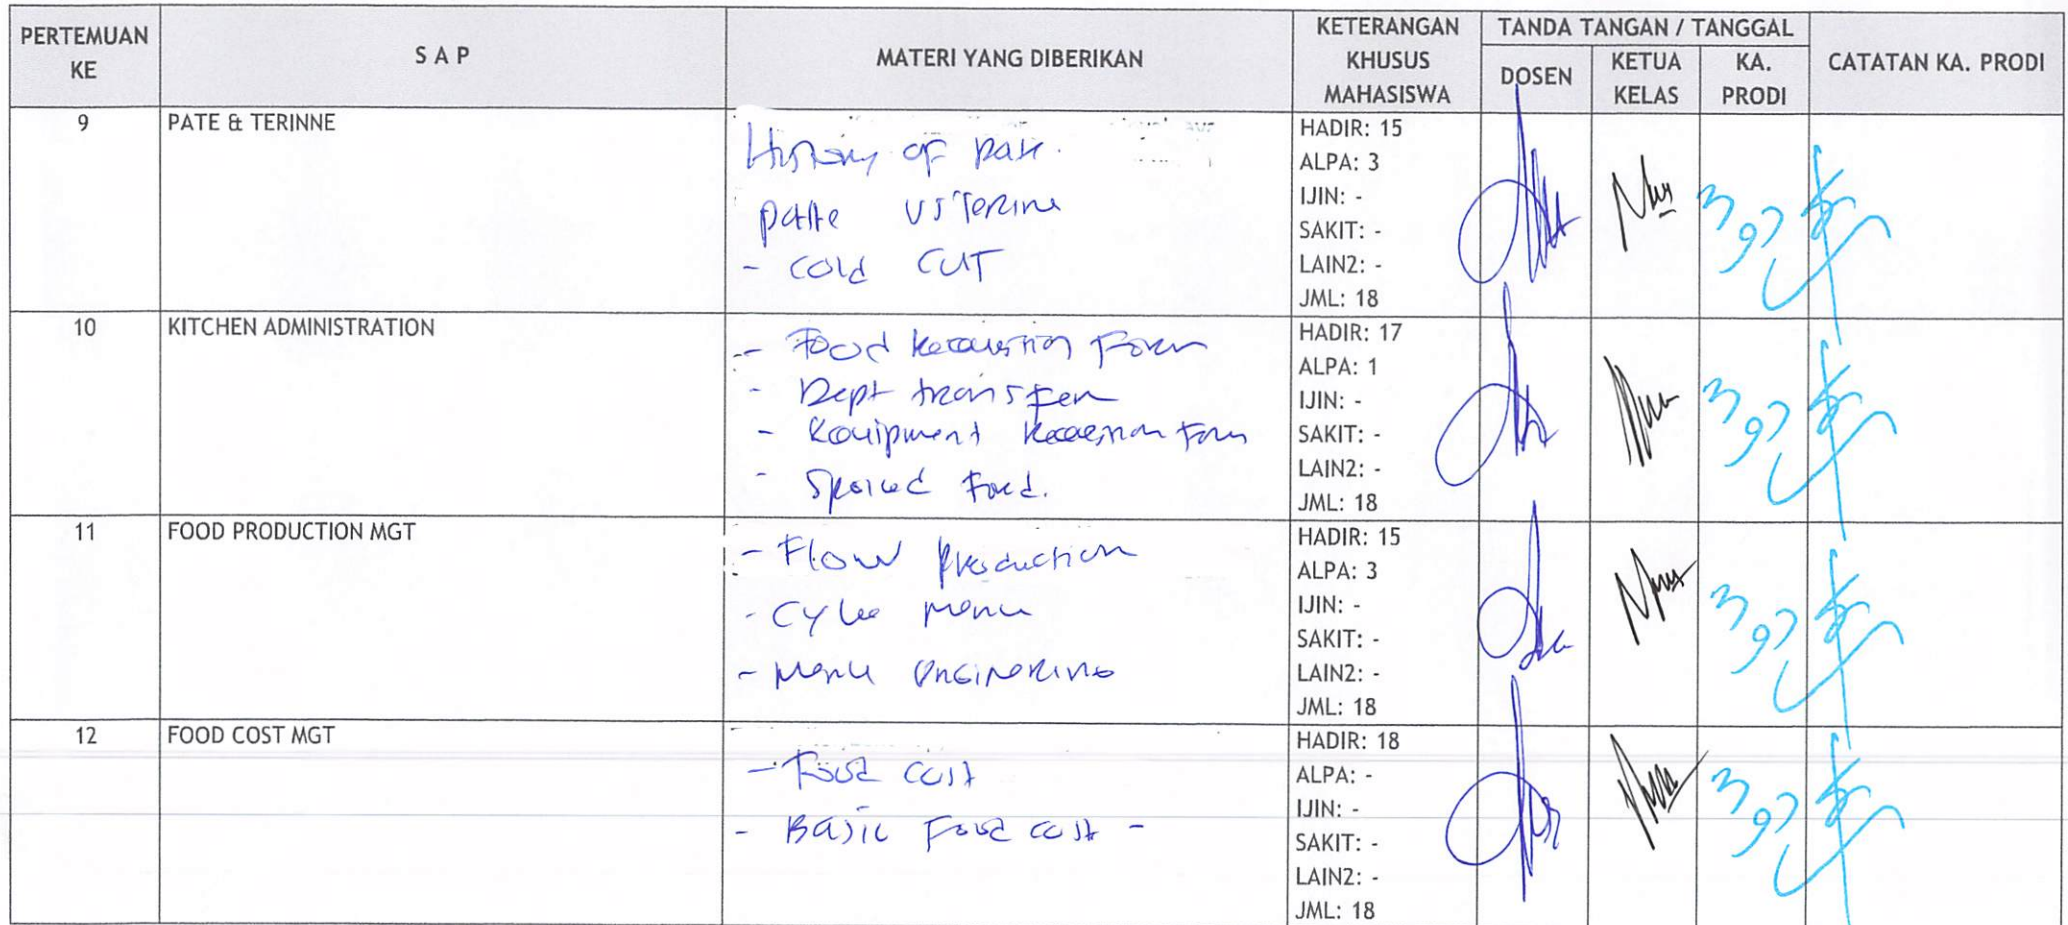 PERTEMUAN KE
S A P
MATERI YANG DIBERIKAN
KETERANGAN KHUSUS MAHASISWA
TANDA TANGAN / TANGGAL
DOSEN
KETUA KELAS
KA. PRODI
CATATAN KA. PRODI
9
PATE & TERINNE
History of pate.
patte vs Terine
- Cold CUT
HADIR: 15
ALPA: 3
IJIN: -
SAKIT: -
LAIN2: -
JML: 18
10
KITCHEN ADMINISTRATION
- Food Form
- Dept transfer
- Form
- Food.
HADIR: 17
ALPA: 1
IJIN: -
SAKIT: -
LAIN2: -
JML: 18
11
FOOD PRODUCTION MGT
- Flow production
- menu
- Menu
HADIR: 15
ALPA: 3
IJIN: -
SAKIT: -
LAIN2: -
JML: 18
12
FOOD COST MGT
- Food cost
- Basic Food cost -
HADIR: 18
ALPA: -
IJIN: -
SAKIT: -
LAIN2: -
JML: 18